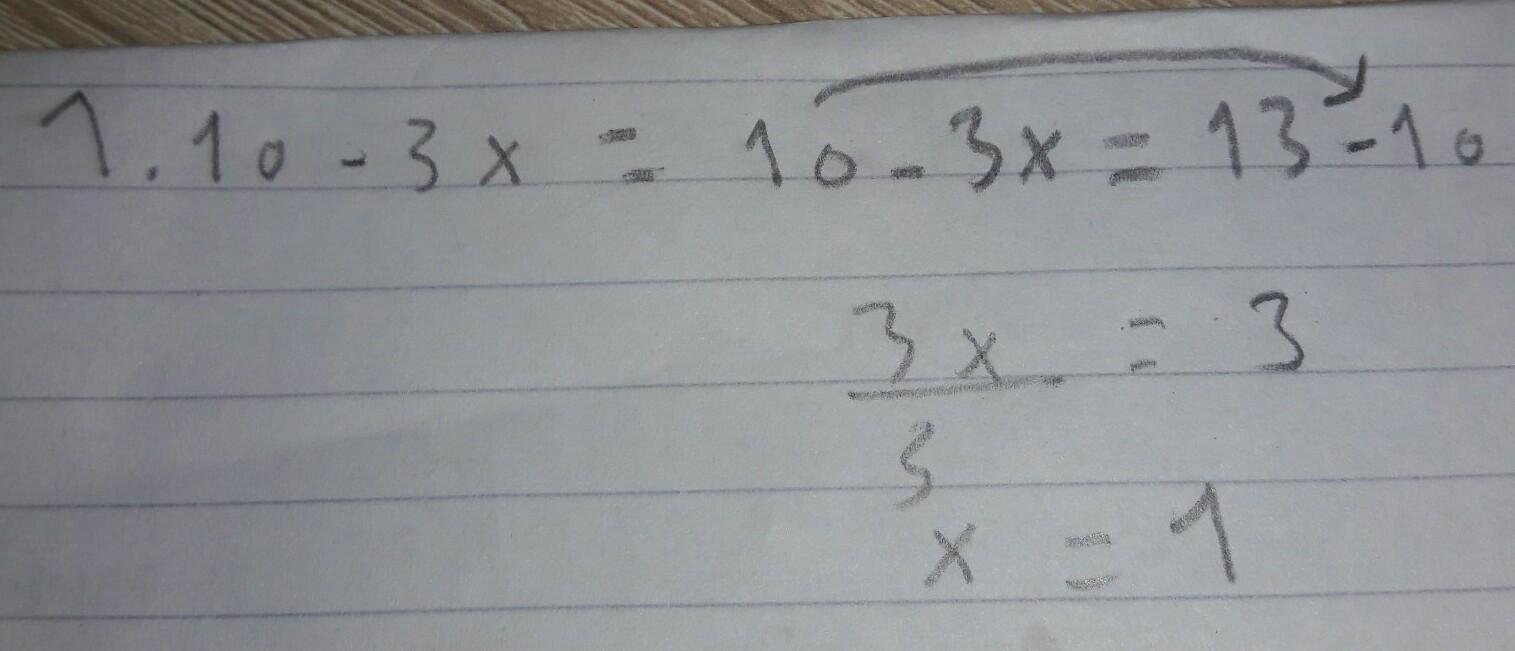 1. 10 - 3x = 10 - 3x = 13 - 10
3x = 3
3
x = 1